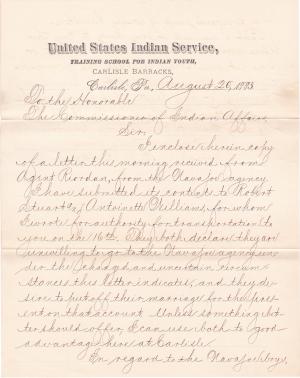 United States Indian Service,
TRAINING SCHOOL FOR INDIAN YOUTH,
CARLISLE BARRACKS,
Carlisle, Pa., August 26, 1883
To the Honorable
The Commissioner of Indian Affairs,
Sir,
I enclose herein copy
of a letter this morning received from
Agent Riordan, from the Navajoe agency.
I have submitted its contents to Robert
Stuart & Antoinette Williams, for whom
I wrote for authority for transportation to
you on the 16th. They both declare they are
unwilling to go to the Navajoe agency un-
der the changed and uncertain circum-
stances this letter indicates, and they de-
sire to put off their marriage for the pres-
ent on that account. Unless something bet-
ter should offer, I can use both to good
advantage here at Carlisle.
In regard to the Navajoe boys,